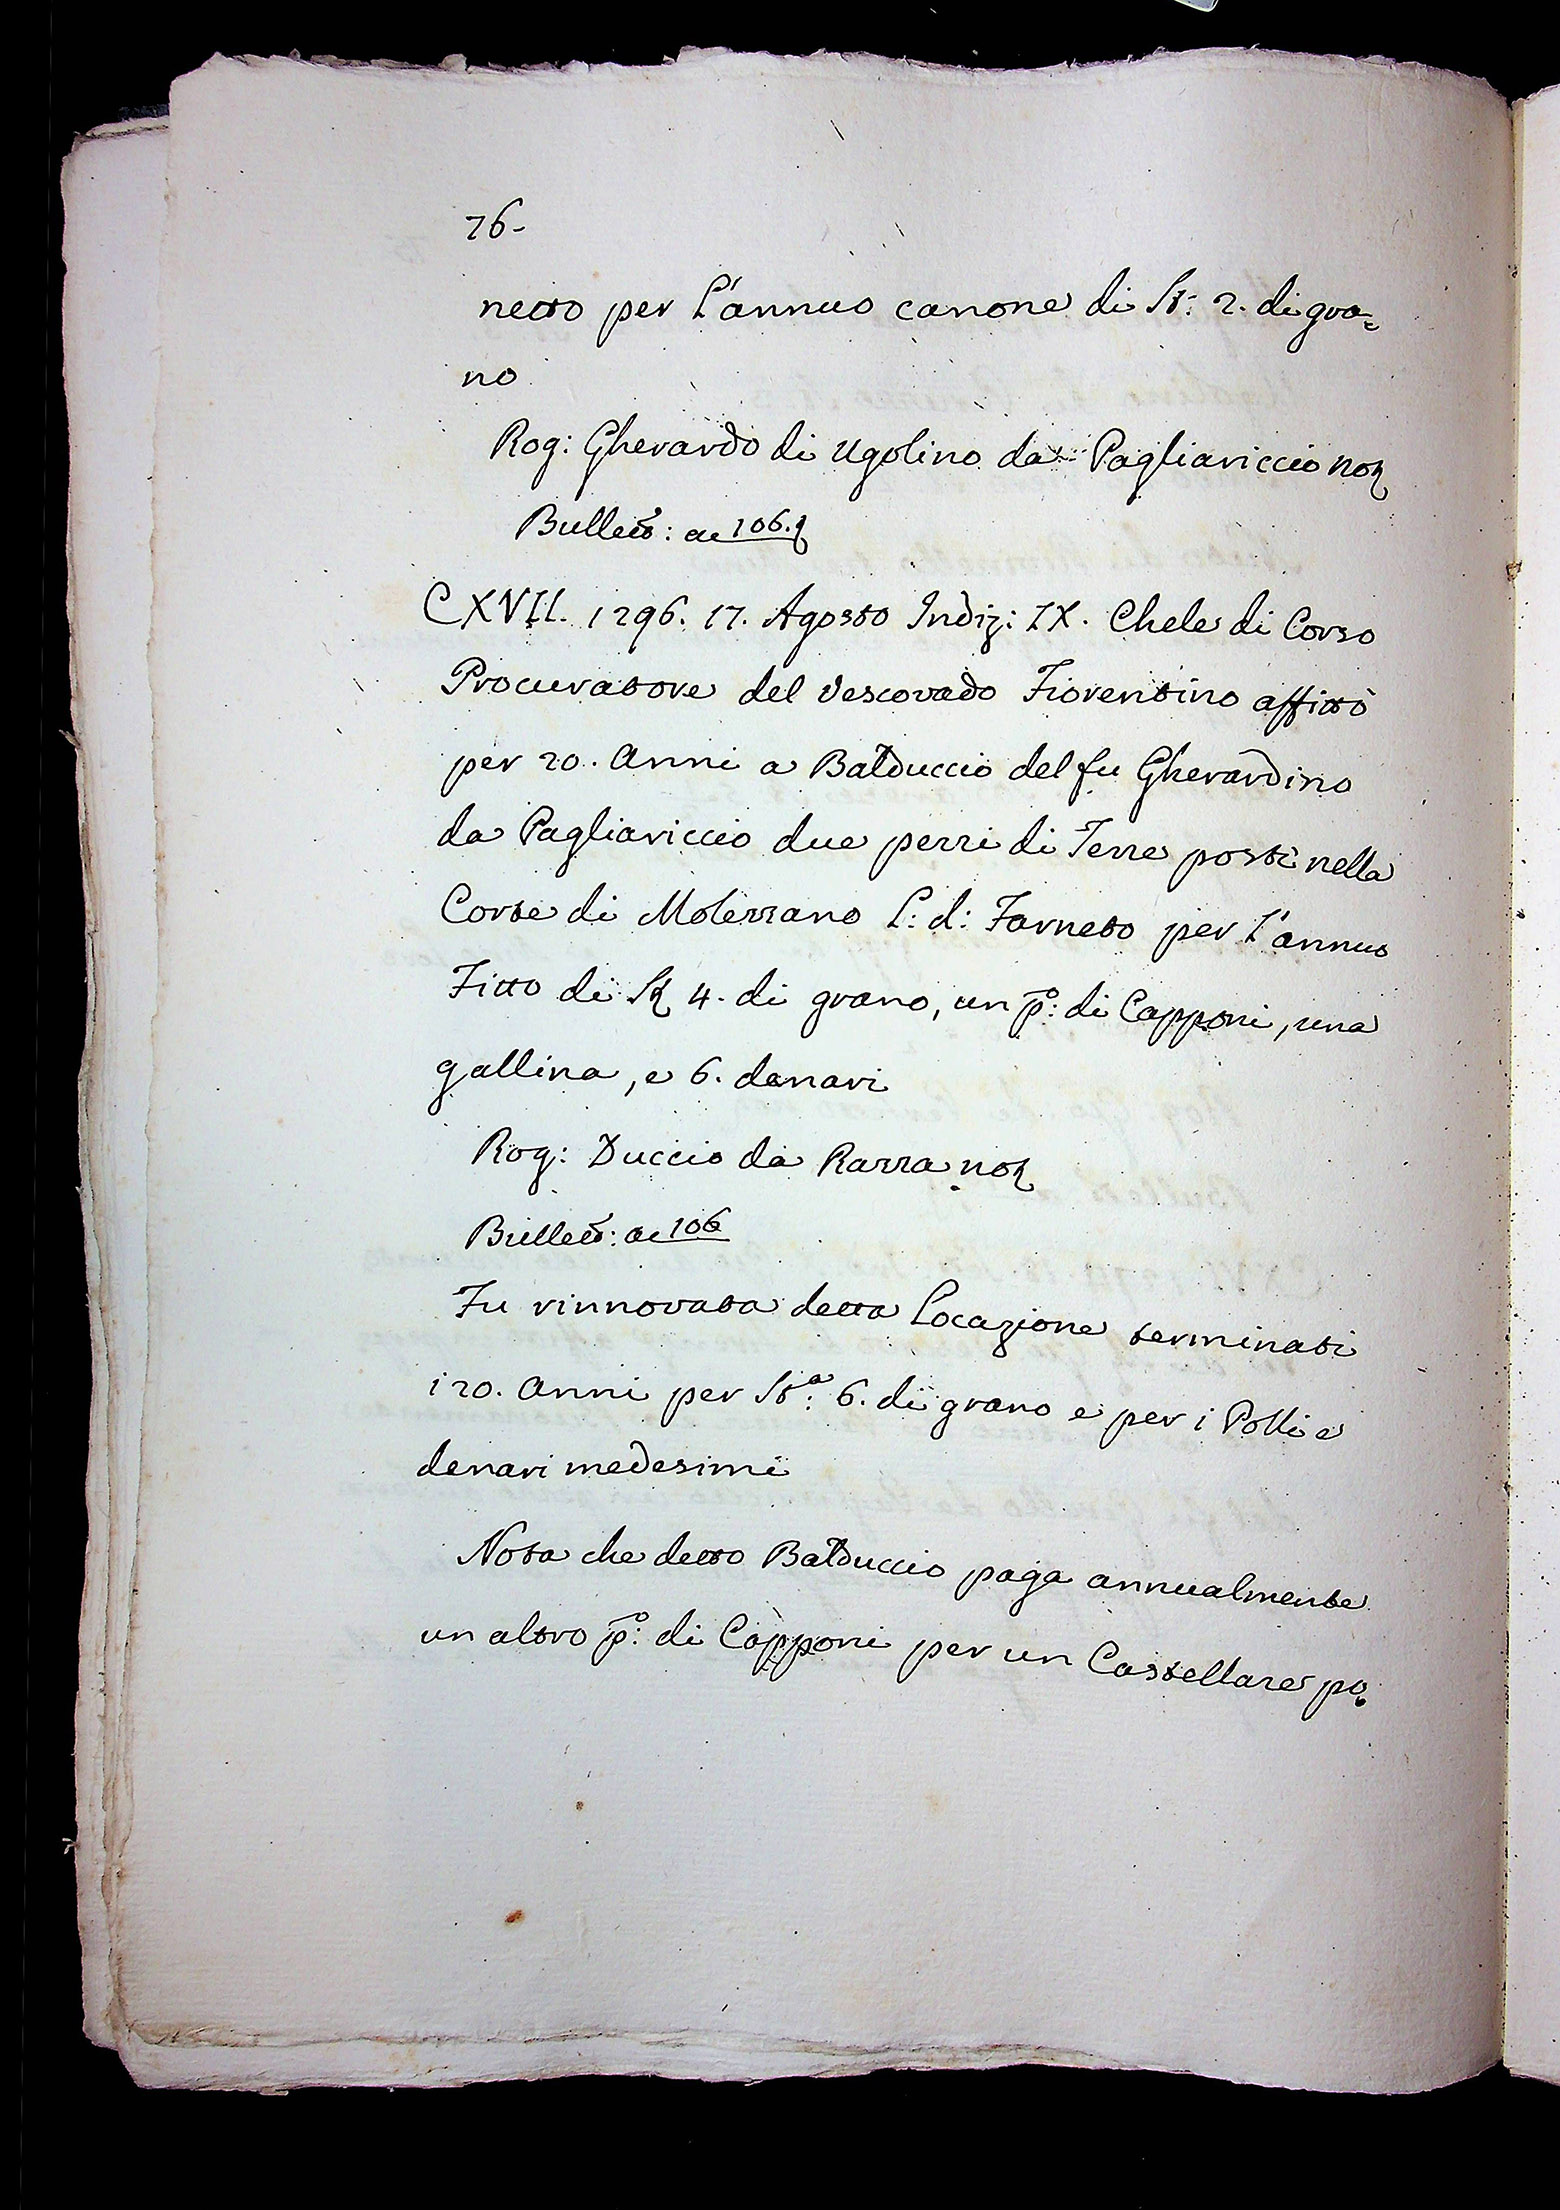 76-
netto per l'annuo canone di St: 2. di gra=
no
Rog: Gherardo di Ugolino da Pagliariccio not
Bullett:o a 106.t
CXVII. 1296. 17. Agosto Indiz: IX. Chele di Corso
Procuratore del Vescovado Fiorentino affittò
per 20. Anni a Balduccio del fu Gherardino
da Pagliariccio due pezzi di Terre posti nella
Corte di Molezzano l: d: Farneto per l'annuo
Fitto di St 4. di grano, un p:o di Capponi, una
gallina, e 6. danari
Rog: Duccio da Razza not
Bullett:o a 106
Fu rinnovata detta Locazione terminati
i 20. Anni per St:a 6. di grano e per i Polli e
denari medesimi
Nota che detto Balduccio paga annualmente
un altro p:o di Capponi per un Castellare po